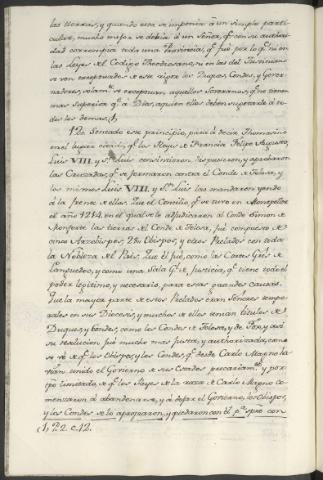 las tierras, y quando esta se imponia á un simple parti-
cular, mucho mejor se debia á un Señor, qe. con su autori-
dad corrompia toda una Provincia, qe. fué por lo qe. ni en
las Leyes del Codigo Theodosiano, ni en las del Justiniano
se ven exceptuados de este rigor los Duques, Condes, y Gover-
nadores, solamte. se exceptuan aquellos Soberanos, qe. no tienen
mas Superior qe. á Dios, aquien ellos deben sugetarse á to-
dos los demas. (1)
12. Sentado este principio, pasa á decir Thomasino
en el lugar citado, qe. los Reyes de Francia Felipe Augusto,
Luis VIII, y Sn. Luis consintieron, dispusieron, y aprobaron
las Cruzadas, qe. se formaron contra el Conde de Tolosa, y
los mismos Luis VIII, y Sn. Luis las mandaron yendo
á la frente de ellas. Que el Concilio, qe. se tuvo en Montpeller
el año 1214. en el qual se le adjudicaron al Conde Simon de
Monforte las tierras del Conde de Tolosa, fué compuesto de
cinco Arzobispos, 28 Obispos, y otros Prelados con toda
la Nobleza del Pais. Que él fué, como las Cortes Gles. de
Languedoc, y como una Sala de Justicia, qe. tiene todo el
poder legitimo, y necesario para estas grandes causas.
Que la mayor parte de estos Prelados eran Señores tempo-
rales en sus Diocesis, y muchos de ellos tenian titulos de
Duques, y Condes, como los Condes de Tolosa, y de Fox, y asi
su resolucion fué mucho mas justa, y authorizada, como
se vé de qe. los Obispos, y los Condes, qe. desde Carlo Magno ha-
vian tenido el Govierno de sus Estados precariamte. y por
tpo. limitado, de qe. los Reyes de la raza de Carlo Magno co-
menzaron á abandonarse, y á dexar el Govierno, los Obispos,
y los Condes se lo apropiaron, y quedaron con él pa. spre. con
(1) P. 2. c. 12.